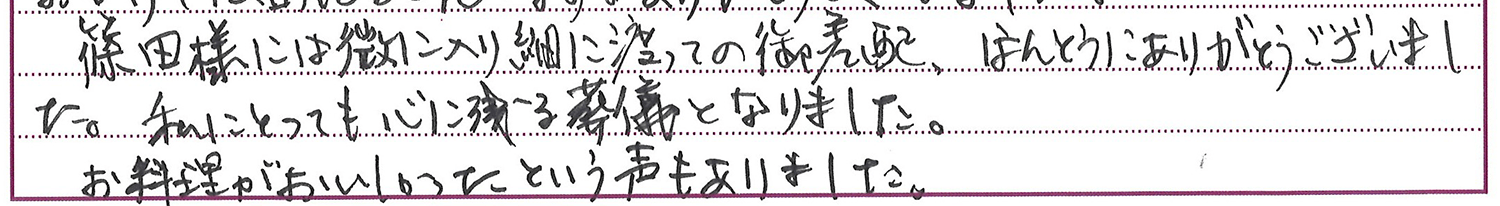 篠田様には微に入り細に渡っての御差配、ほんとうにありがとうございまし
た。私にとっても心に残る葬儀となりました。
お料理がおいしかったという声もありました。